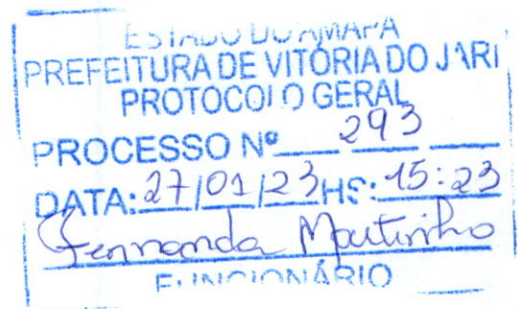 ESTADO DO AMAPA
PREFEITURA DE VITÓRIA DO JARI
PROTOCOLO GERAL
PROCESSO Nº 293
DATA: 27/01/23 HS: 15:23
Fernanda Moutinho
FUNCIONÁRIO